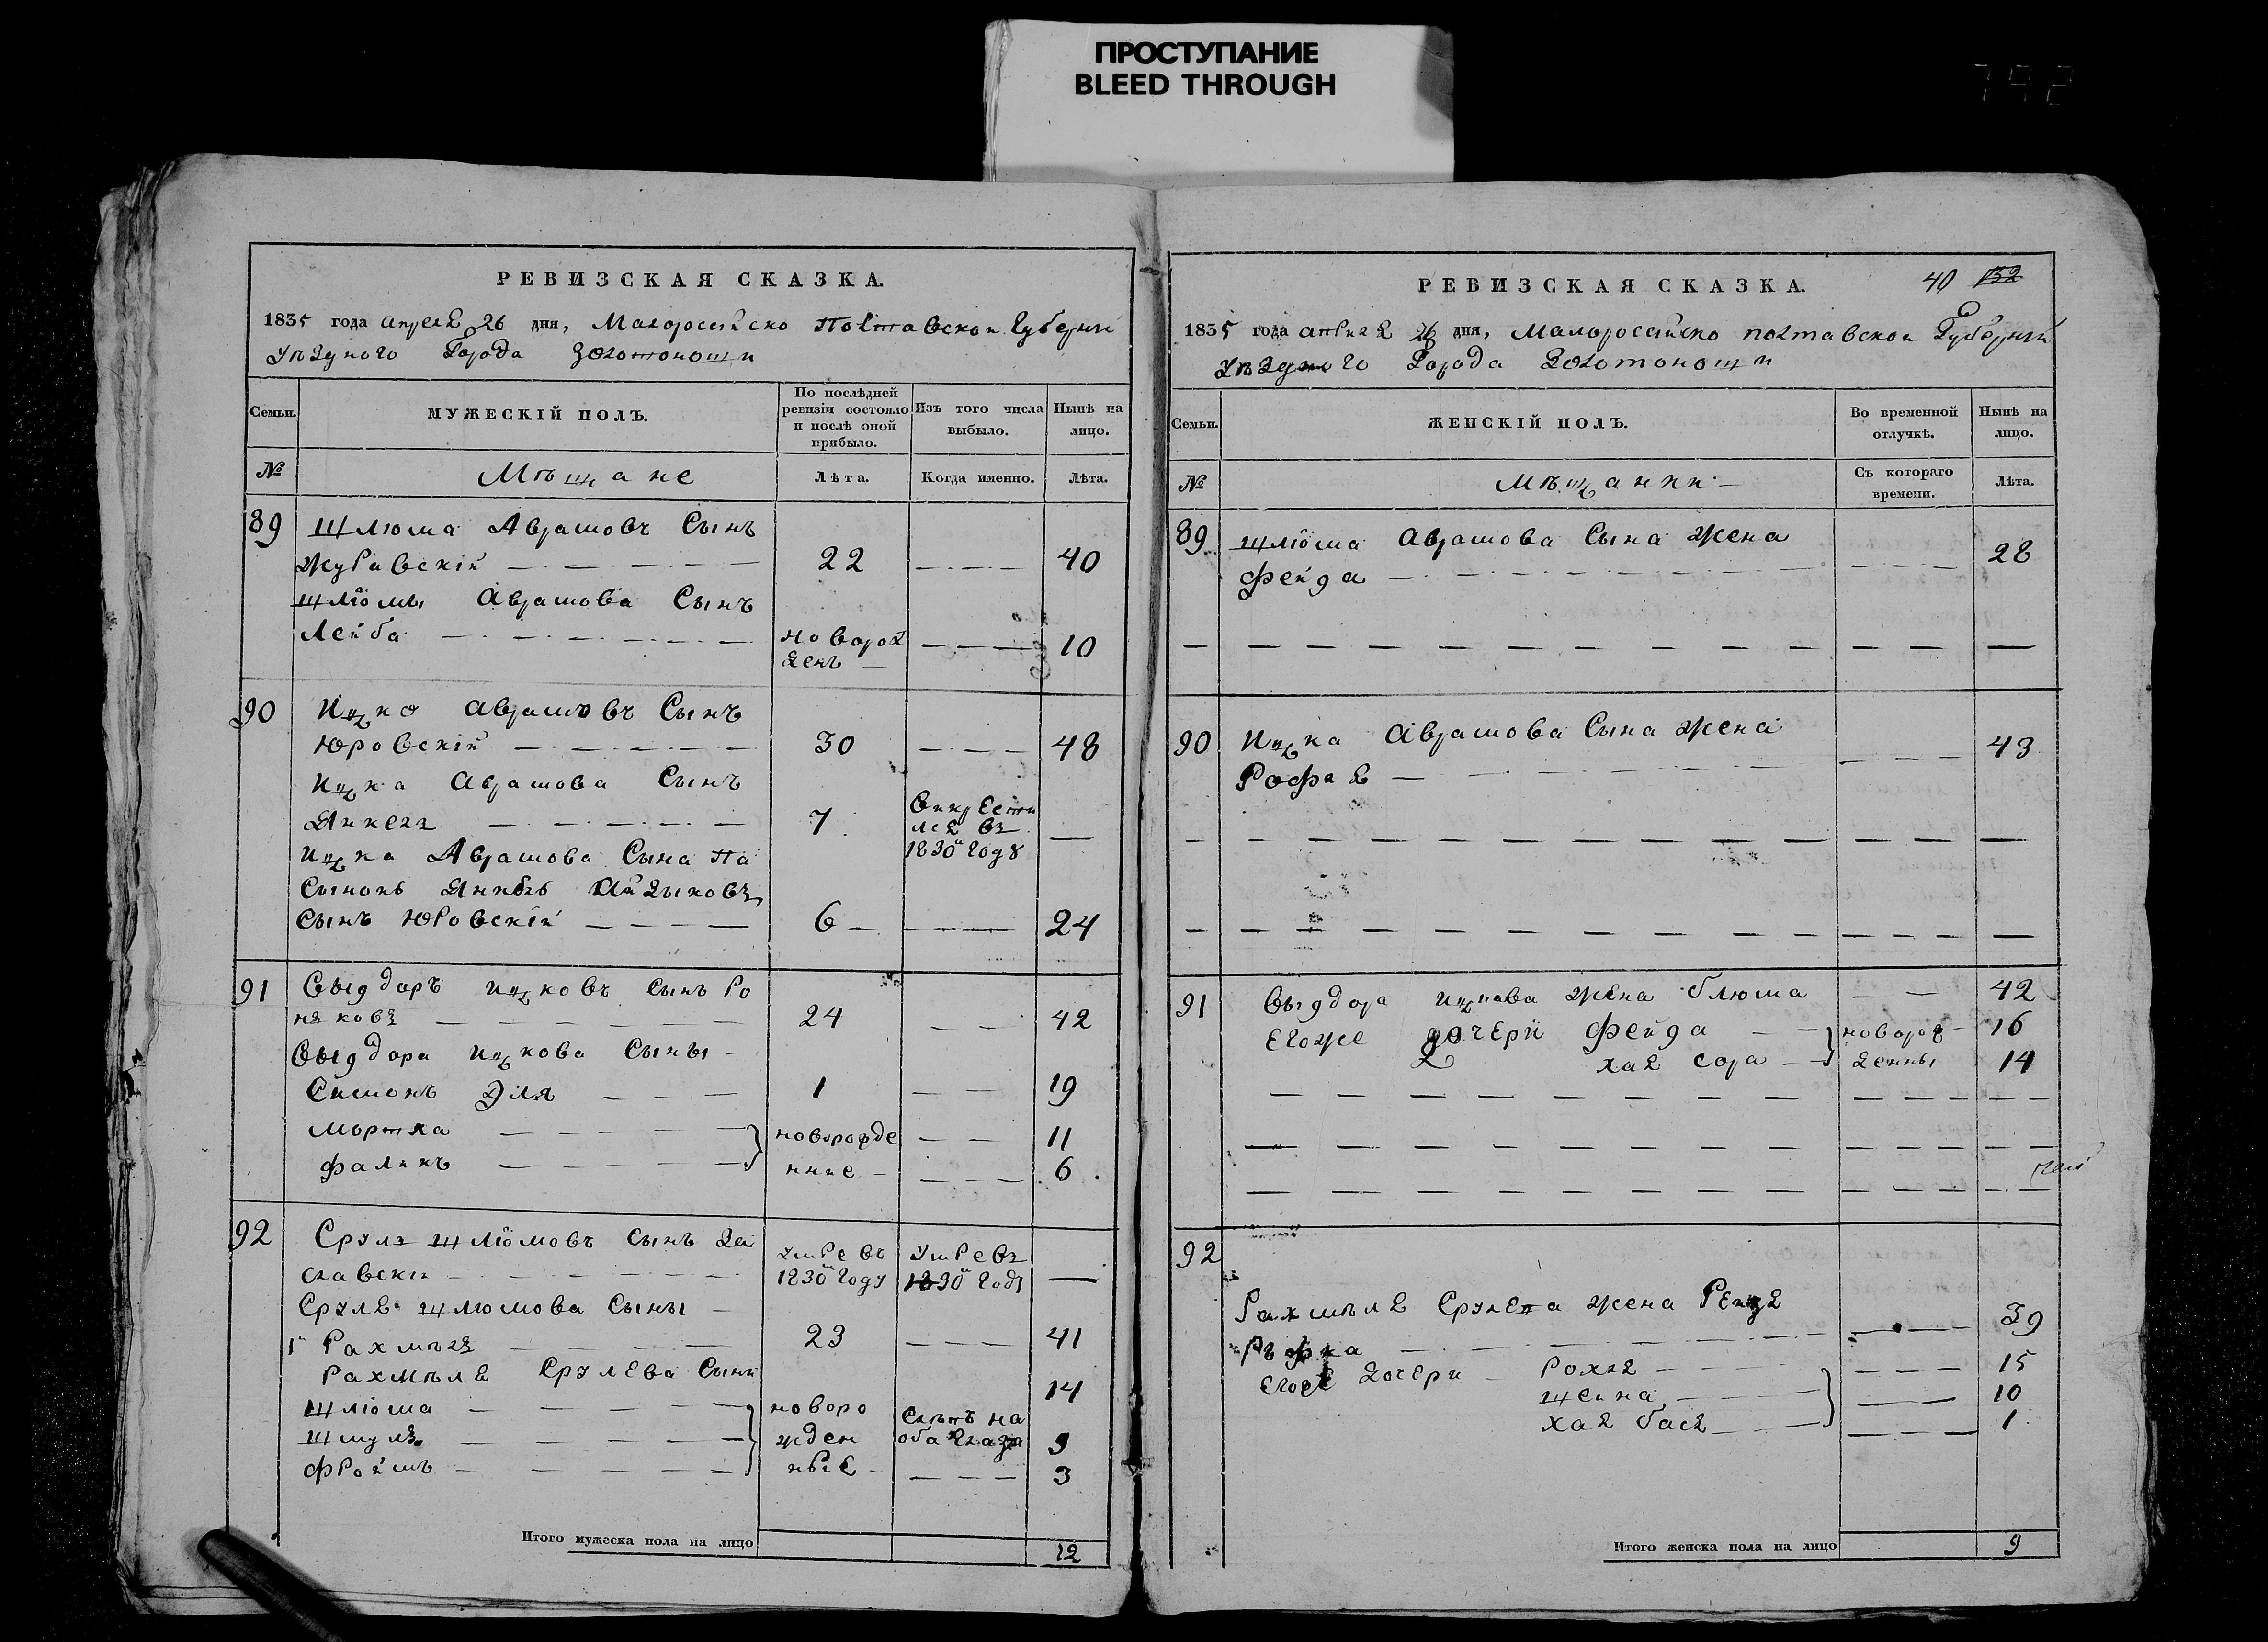 ПРОСТУПАНИЕ
BLEED THROUGH
РЕВИЗСКАЯ СКАЗКА.
1835 года апреля 26 дня, Малоросейско Полтавской Губернии
уезного Города Золотоноши
Семьи.
МУЖЕСКІЙ ПОЛЪ.
По послѣдней ревизіи состояло и послѣ оной прибыло.
Изъ того числа выбыло.
Нынѣ на лицо.
№
Мѣщане
Лѣта.
Когда именно.
Лѣта.
89 Шлюма Аврамовъ Сынъ
Журавскій 22 40
Шліомы Аврамова Сынъ
Лейба новорож 10
денъ
90 Ицко Аврамовъ Сынъ
Юровскій 30 48
Ицка Аврамова Сынъ
Янкель 7
лся въ
1830й году
Ицка Аврамова Сына па
Сынокъ
Сынъ Юровскій 6 24
91 Ицковъ Сынъ Ро
24 42
Ицкова Сыны
Симонъ Эля 1 19
Мортха новорожде 11
Фаликъ нние 6
92 Сруль Шліомовъ Сынъ За
славски
умре въ 1830м году
умре въ 1830м году
Сруля Шлюмова Сыны
1й Рахмѣль 23 41
Рахмѣля Срулева Сыни
Шліома новоро 14
Шмуль жден 9
Слѣпъ на
оба глаза
Фроимъ ные 3
Итого мужеска пола на лицо 12
РЕВИЗСКАЯ СКАЗКА.
40 132
1835 года априля 26 дня, Малоросейско полтавской Губерний
уезного Города Золотоноши
Семьи.
ЖЕНСКІЙ ПОЛЪ.
Во временной отлучкѣ.
Нынѣ на лицо.
№
мѣщанки
Съ котораго времени.
Лѣта.
89 Шліома Аврамова Сына жена
Фейда 28
90 Ицка Аврамова Сына жена 43
91 Ицкова жена Блюма 42
Егоже дочери Фейда новорож 16
Хая Сора денны 14
92
Рахмѣля жена 39
Егоже дочери Рохля 15
Шейна 10
Хая Бася 1
Итого женска пола на лицо 9